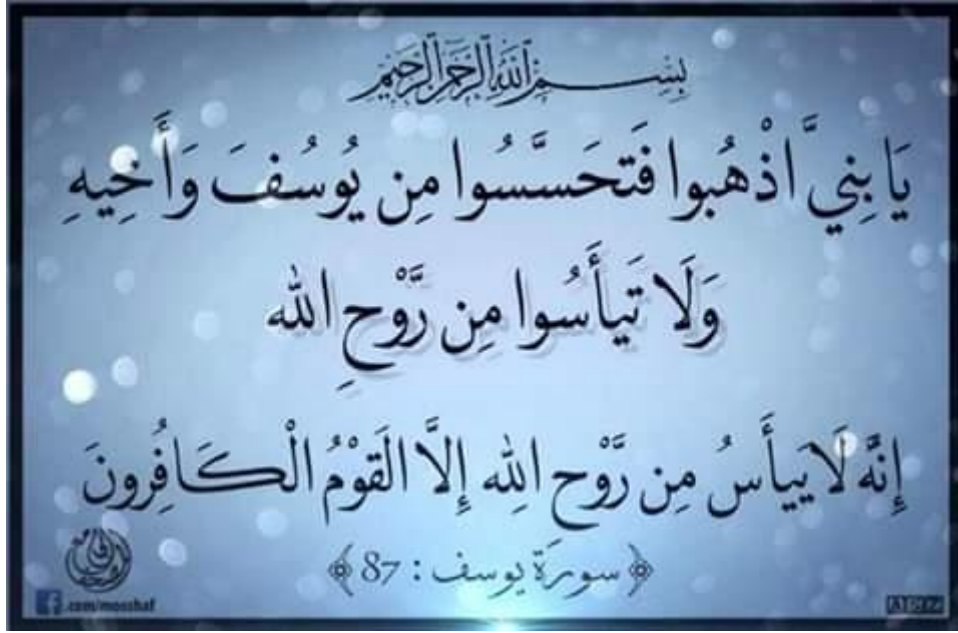 بِسْمِ اللَّهِ الرَّحْمَنِ الرَّحِيمِ
يَا بِنِيَّ اذْهَبُوا فَتَحَسَّسُوا مِن يُوسُفَ وَأَخِيهِ
وَلَا تَيأَسُوا مِن رَّوْحِ الله
إِنَّه لَا ييأَسُ مِن رَّوْحِ الله إِلَّا القَوْمُ الْكَافِرُونَ
﴿سورة يوسف : 87﴾
.com/mosshaf